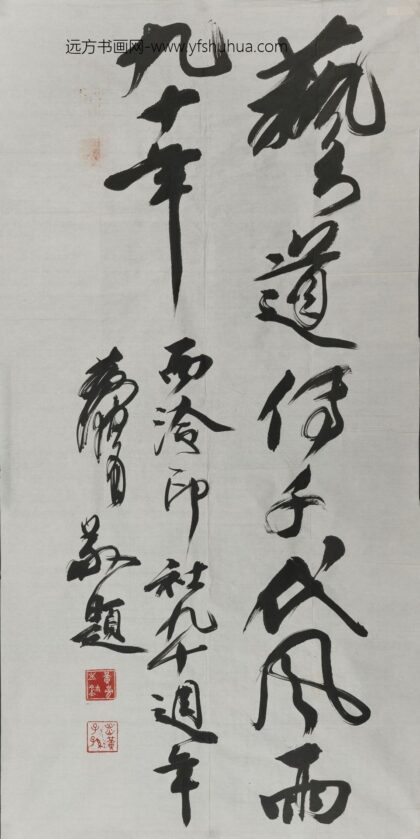 远方书画网-www.yfshuhua.com
藝道傳千代風雨
九十年
西泠印社九十週年
敬題